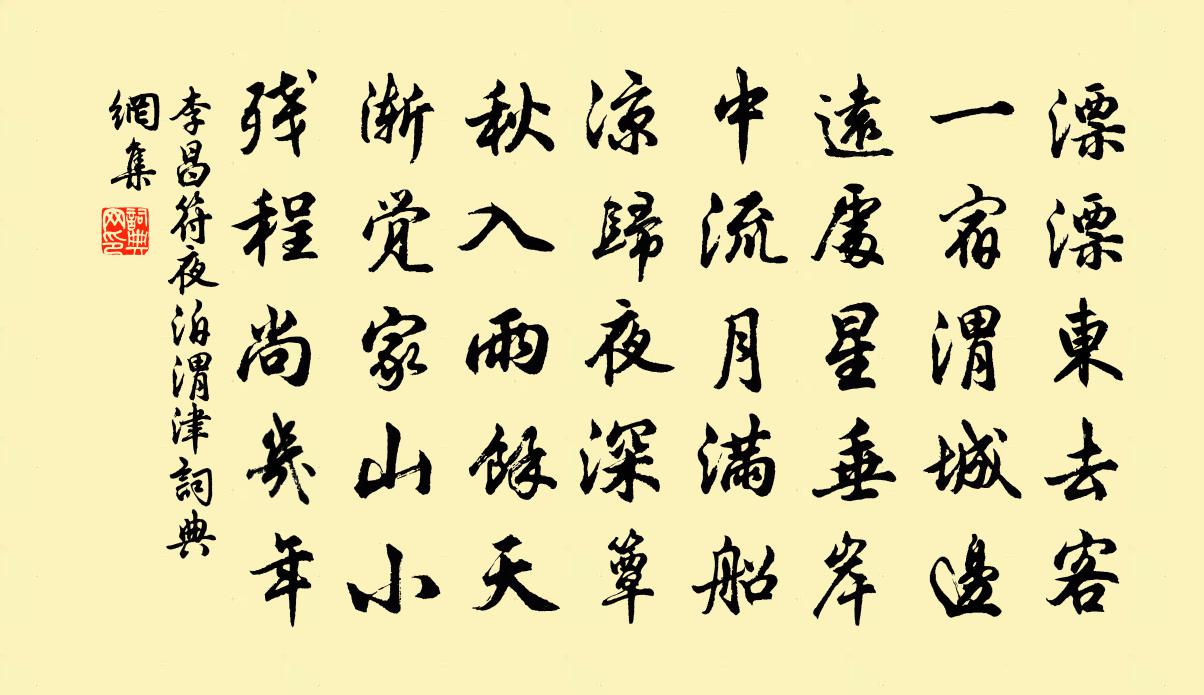 漂漂東去客
一宿渭城邊
遠處星垂岸
中流月滿船
涼歸夜深簟
秋入雨餘天
漸觉家山小
残程尚幾年
李昌符夜泊渭津詞典
網集
詞典网印